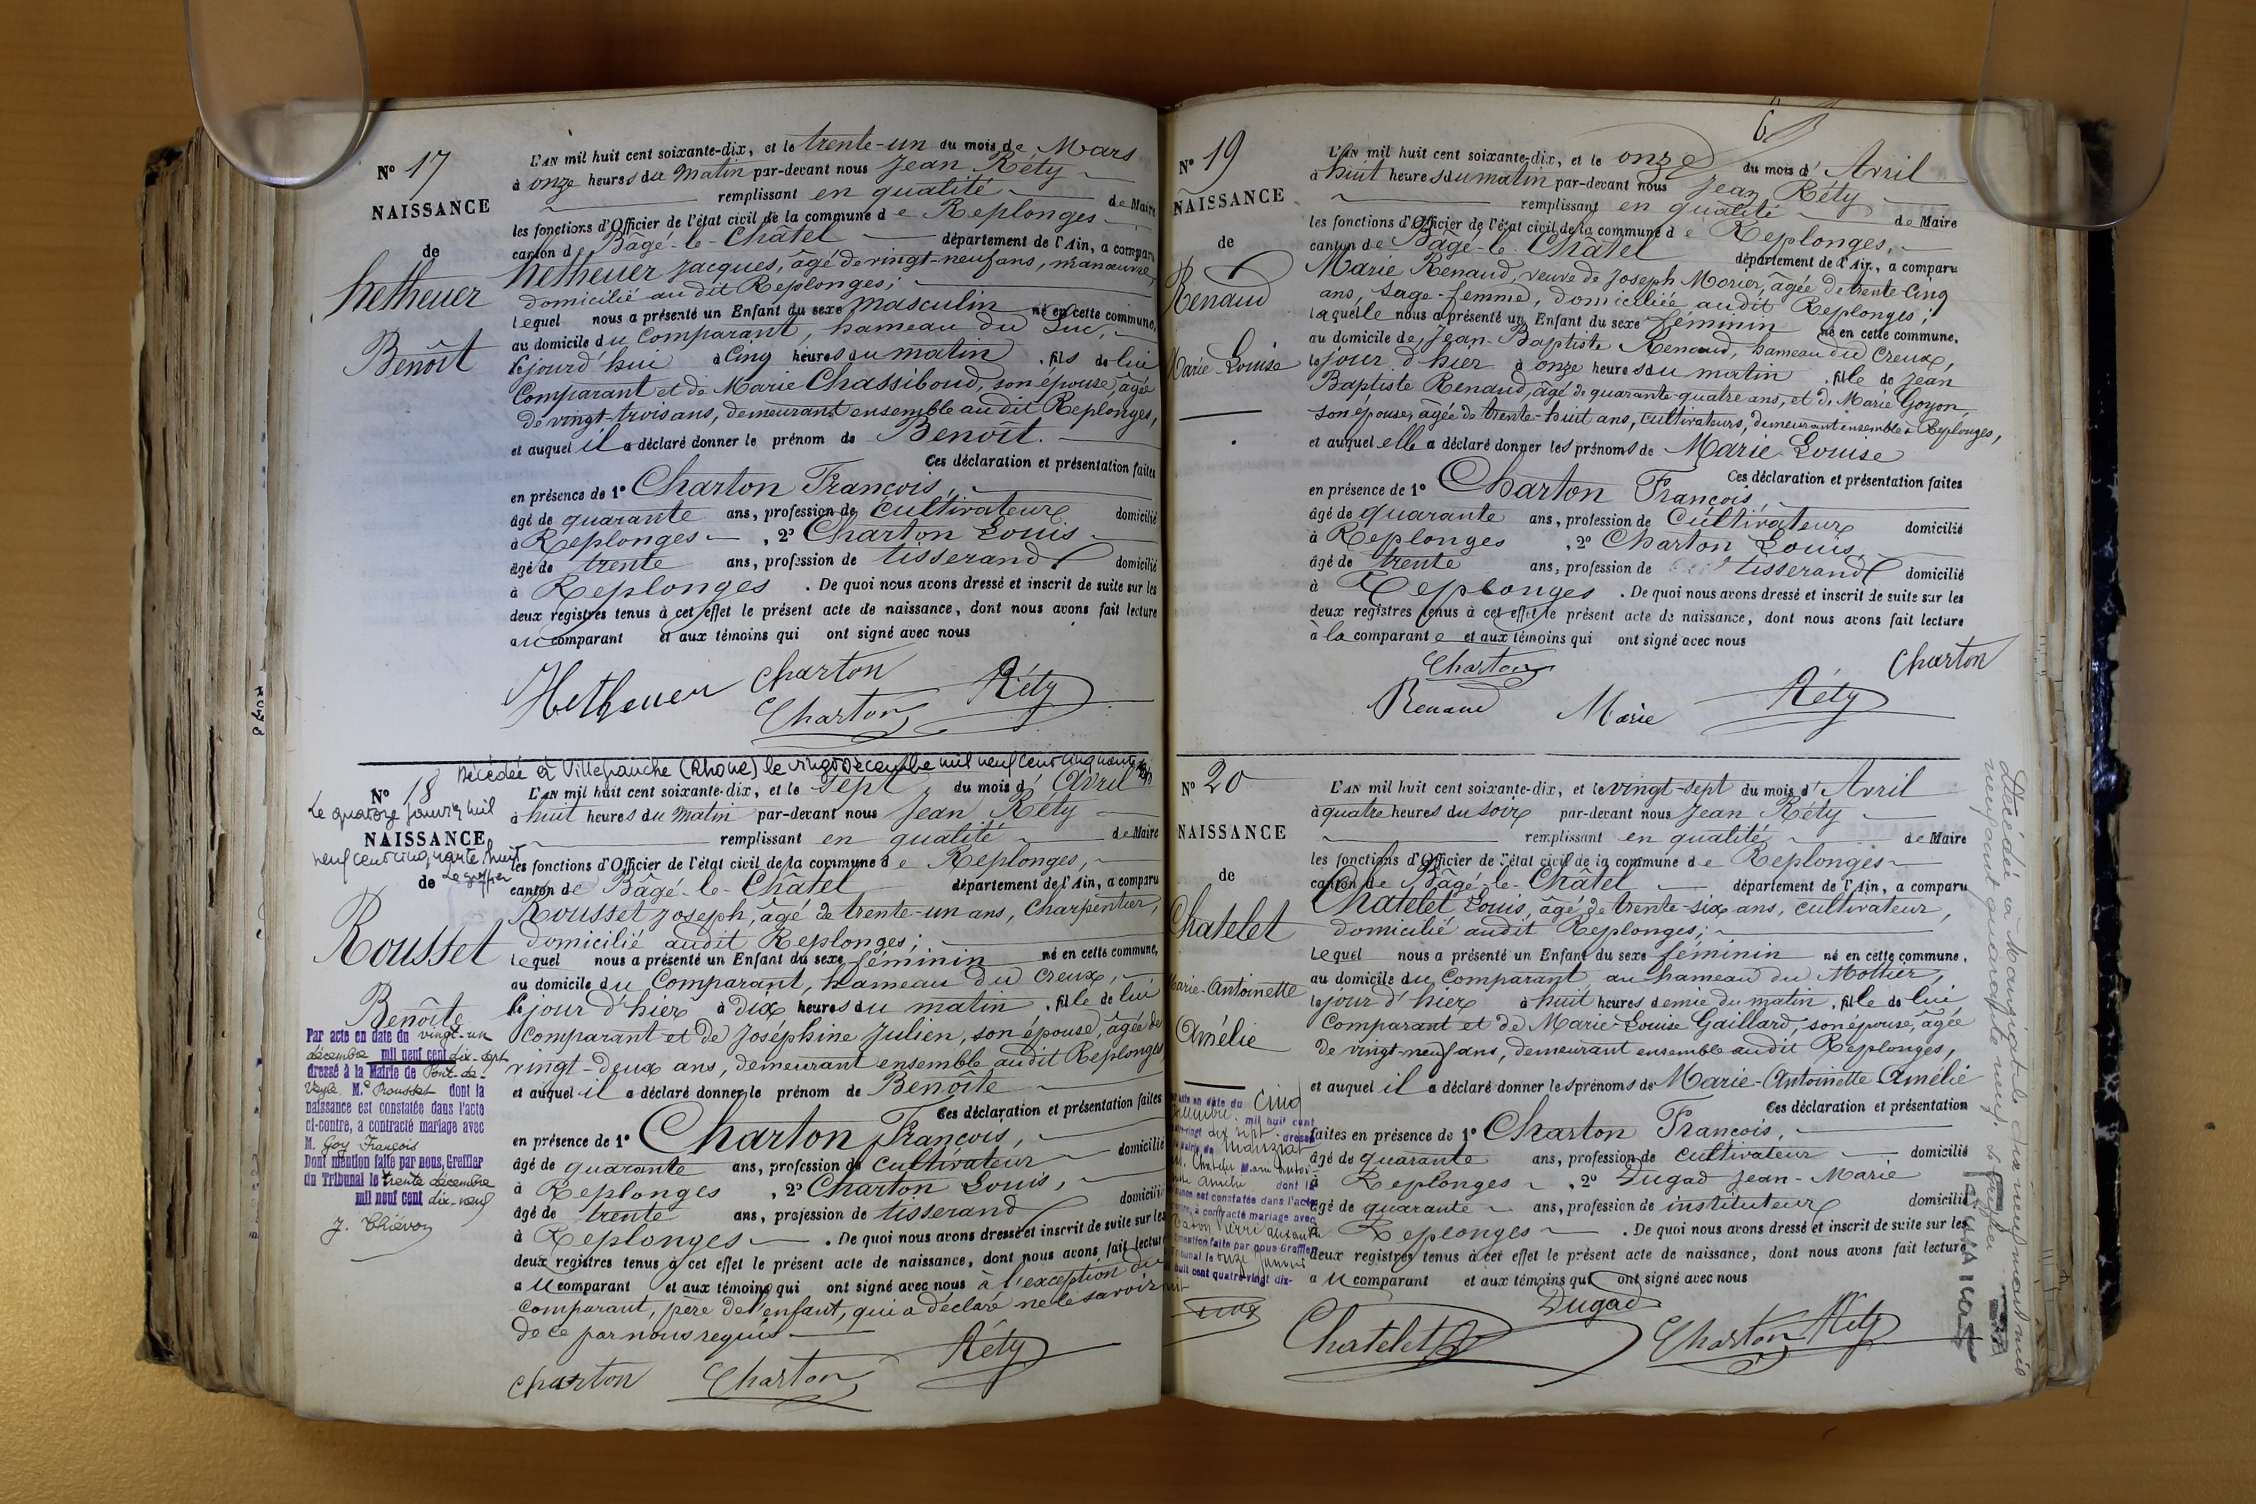 N° 17
NAISSANCE
de
hetheuer
Benoît
L'AN mil huit cent soixante-dix, et le trente-un du mois de Mars
à onze heures du matin par-devant nous Jean Réty
remplissant en qualité de Maire
les fonctions d'Officier de l'état civil de la commune de Replonges
canton de Bâgé-le-Châtel département de l'Ain, a comparu
hetheuer Jacques, âgé de vingt-neuf ans, manœuvre,
domicilié audit Replonges;
lequel nous a présenté un Enfant du sexe masculin né en cette commune,
au domicile du Comparant, hameau du Luc,
le jourd'hui à Cinq heures du matin, fils de lui
Comparant et de Marie Chassiboud, son épouse, âgée
de vingt-trois ans, demeurant ensemble audit Replonges,
et auquel il a déclaré donner le prénom de Benoît.
Ces déclaration et présentation faites
en présence de 1° Charton François,
âgé de quarante ans, profession de Cultivateur domicilié
à Replonges, 2° Charton Louis
âgé de trente ans, profession de tisserand domicilié
à Replonges. De quoi nous avons dressé et inscrit de suite sur les
deux registres tenus à cet effet le présent acte de naissance, dont nous avons fait lecture
au comparant et aux témoins qui ont signé avec nous
Hetheuer Charton Réty
Charton
Décédée à Villefranche (Rhône) le vingt décembre mil neuf cent cinquante
N° 18
Le quatorze janvier mil
NAISSANCE
neuf cent cinquante huit
de Le greffier
Rousset
Benoîte
Par acte en date du vingt-un
décembre mil neuf cent dix-sept
dressé à la Mairie de Pont-de-
Veyle Mlle Rousset dont la
naissance est constatée dans l'acte
ci-contre, a contracté mariage avec
M. Goy François
Dont mention faite par nous, Greffier
du Tribunal le trente décembre
mil neuf cent dix-neuf
L'AN mil huit cent soixante-dix, et le sept du mois d'Avril
à huit heures du matin par-devant nous Jean Réty
remplissant en qualité de Maire
les fonctions d'Officier de l'état civil de la commune de Replonges,
canton de Bâgé-le-Châtel département de l'Ain, a comparu
Rousset Joseph, âgé de trente-un ans, Charpentier,
domicilié audit Replonges;
lequel nous a présenté un Enfant du sexe féminin né en cette commune,
au domicile du Comparant, hameau du Creux,
le jour d'hier à dix heures du matin, fille de lui
Comparant et de Joséphine Julien, son épouse, âgée de
vingt-deux ans, demeurant ensemble audit Replonges
et auquel il a déclaré donner le prénom de Benoîte
Ces déclaration et présentation faites
en présence de 1° Charton François,
âgé de quarante ans, profession de cultivateur domicilié
à Replonges, 2° Charton Louis,
âgé de trente ans, profession de tisserand domicilié
à Replonges. De quoi nous avons dressé et inscrit de suite sur les
deux registres tenus à cet effet le présent acte de naissance, dont nous avons fait lecture
au comparant et aux témoins qui ont signé avec nous à l'exception du
Comparant, père de l'enfant, qui a déclaré ne le savoir
de ce par nous requis
Charton Charton Réty
6
N° 19
NAISSANCE
de
Renaud
Marie-Louise
L'AN mil huit cent soixante-dix, et le onze du mois d'Avril
à huit heures du matin par-devant nous Jean Réty
remplissant en qualité de Maire
les fonctions d'Officier de l'état civil de la commune de Replonges,
canton de Bâgé-le-Châtel département de l'Ain, a comparu
Marie Renaud, veuve de Joseph Morier, âgée de trente-cinq
ans, Sage-femme, domiciliée audit Replonges;
laquelle nous a présenté un Enfant du sexe féminin né en cette commune,
au domicile de Jean-Baptiste Renaud, hameau du Creux,
le jour d'hier à onze heures du matin, fille de Jean
Baptiste Renaud, âgé de quarante-quatre ans, et de Marie Goyon,
son épouse, âgée de trente-huit ans, cultivateurs, demeurant ensemble à Replonges,
et auquel elle a déclaré donner les prénoms de Marie Louise
Ces déclaration et présentation faites
en présence de 1° Charton François,
âgé de quarante ans, profession de Cultivateur domicilié
à Replonges, 2° Charton Louis,
âgé de trente ans, profession de tisserand domicilié
à Replonges. De quoi nous avons dressé et inscrit de suite sur les
deux registres tenus à cet effet le présent acte de naissance, dont nous avons fait lecture
à la comparante et aux témoins qui ont signé avec nous
Charton Charton
Renaud Marie Réty
N° 20
NAISSANCE
de
Chatelet
Marie-Antoinette
Amélie
L'AN mil huit cent soixante-dix, et le vingt-sept du mois d'Avril
à quatre heures du soir par-devant nous Jean Réty
remplissant en qualité de Maire
les fonctions d'Officier de l'état civil de la commune de Replonges
canton de Bâgé-le-Châtel département de l'Ain, a comparu
Chatelet Louis, âgé de trente-six ans, cultivateur,
domicilié audit Replonges;
lequel nous a présenté un Enfant du sexe féminin né en cette commune,
au domicile du Comparant au hameau du Mottier,
le jour d'hier à huit heures demie du matin, fille de lui
Comparant et de Marie-Louise Gaillard, son épouse, âgée
de vingt-neuf ans, demeurant ensemble audit Replonges,
et auquel il a déclaré donner les prénoms de Marie-Antoinette Amélie
Ces déclaration et présentation
faites en présence de 1° Charton François,
âgé de quarante ans, profession de cultivateur domicilié
à Replonges, 2° Dugad Jean-Marie
âgé de quarante ans, profession de instituteur domicilié
à Replonges. De quoi nous avons dressé et inscrit de suite sur les
deux registres tenus à cet effet le présent acte de naissance, dont nous avons fait lecture
au comparant et aux témoins qui ont signé avec nous
Dugad
Chatelet Charton Réty
acte en date du cinq
mil huit cent
vingt dix sept dressé
mairie de Manziat
Chatelet Marie Antoi-
nette Amélie dont la
naissance est constatée dans l'acte
a contracté mariage avec
mention faite par nous Greffier
Tribunal le onze janvier
huit cent quatre-vingt dix-
Décédée à Manziat le dix neuf mars mil
neuf cent quarante neuf. Le greffier